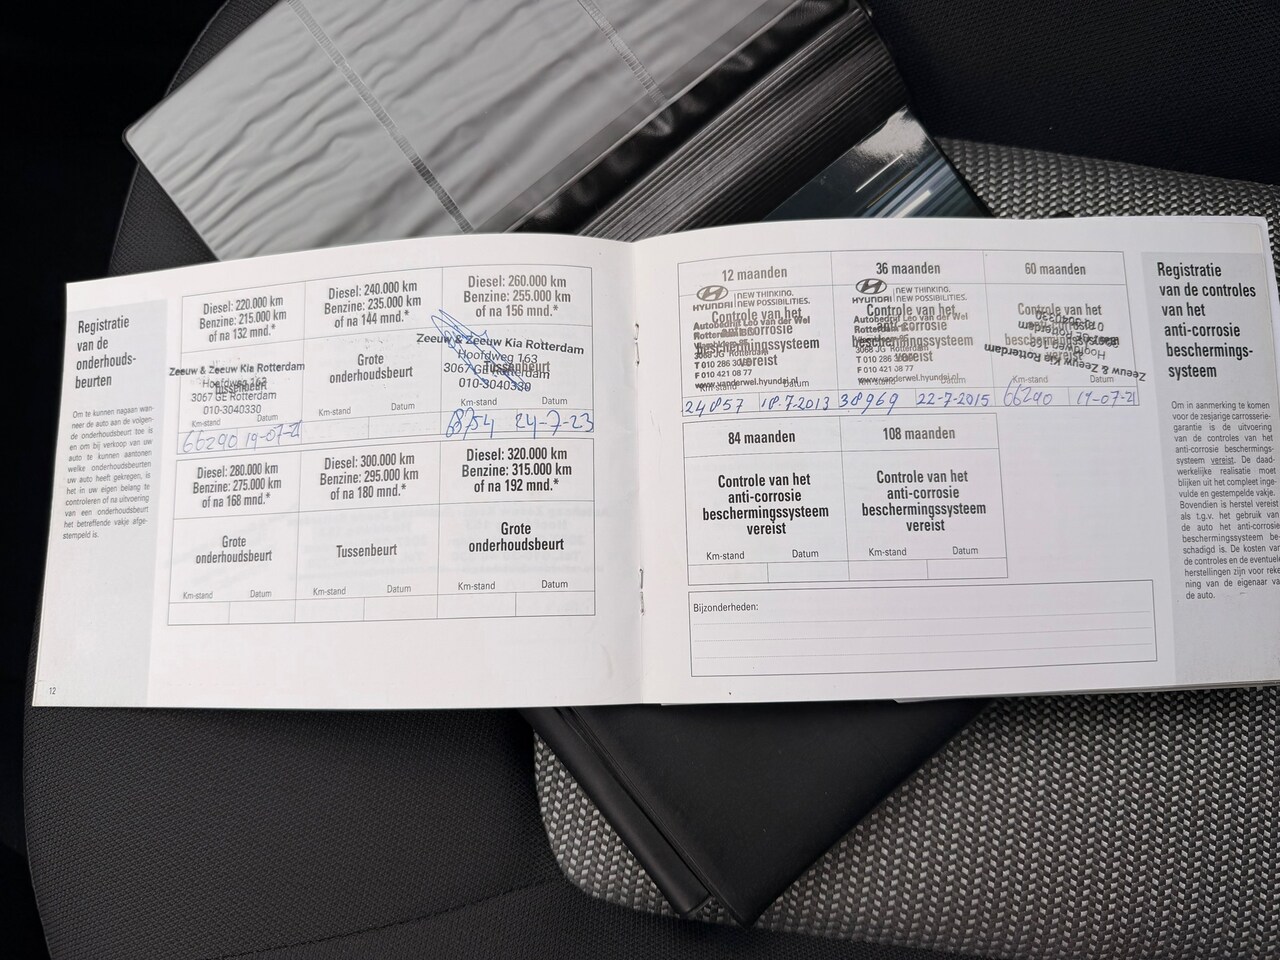 Registratie
van de
onderhouds-
beurten
Om te kunnen nagaan wan-
neer de auto aan de volgen-
de onderhoudsbeurt toe is
en om bij verkoop van uw
auto te kunnen aantonen
welke onderhoudsbeurten
uw auto heeft gekregen, is
het in uw eigen belang te
controleren of na uitvoering
van een onderhoudsbeurt
het betreffende vakje afge-
stempeld is.
12
Diesel: 220.000 km
Benzine: 215.000 km
of na 132 mnd.*
Zeeuw & Zeeuw Kia Rotterdam
Hoofdweg 163
Tussenbeurt
3067 GE Rotterdam
010-3040330
Km-stand Datum
66290 19-07-21
Diesel: 240.000 km
Benzine: 235.000 km
of na 144 mnd.*
Grote
onderhoudsbeurt
Km-stand Datum
Diesel: 260.000 km
Benzine: 255.000 km
of na 156 mnd.*
Zeeuw & Zeeuw Kia Rotterdam
Hoofdweg 163
Tussenbeurt
3067 GE Rotterdam
010-3040330
Datum
24-7-23
Diesel: 280.000 km
Benzine: 275.000 km
of na 168 mnd.*
Grote
onderhoudsbeurt
Km-stand Datum
Diesel: 300.000 km
Benzine: 295.000 km
of na 180 mnd.*
Tussenbeurt
Km-stand Datum
Diesel: 320.000 km
Benzine: 315.000 km
of na 192 mnd.*
Grote
onderhoudsbeurt
Km-stand Datum
12 maanden
HYUNDAI
NEW THINKING.
NEW POSSIBILITIES.
Controle van het
anti-corrosie
beschermingssysteem
vereist
Autobedrijf Leo van der Wel
Rotterdam
3068 JG Rotterdam
F 010 421 08 77
www.vanderwel.hyundai.nl
24857 18-7-2013
36 maanden
HYUNDAI
NEW THINKING.
NEW POSSIBILITIES.
Controle van het
anti-corrosie
beschermingssysteem
vereist
Autobedrijf Leo van der Wel
Rotterdam
3068 JG Rotterdam
F 010 421 08 77
www.vanderwel.hyundai.nl
38969 22-7-2015
60 maanden
Controle van het
anti-corrosie
beschermingssysteem
vereist
Zeeuw & Zeeuw Kia Rotterdam
Hoofdweg 163
Km-stand Datum
66290 19-07-21
84 maanden
Controle van het
anti-corrosie
beschermingssysteem
vereist
Km-stand Datum
108 maanden
Controle van het
anti-corrosie
beschermingssysteem
vereist
Km-stand Datum
Bijzonderheden:
Registratie
van de controles
van het
anti-corrosie
beschermings-
systeem
Om in aanmerking te komen
voor de zesjarige carrosserie-
garantie is de uitvoering
van de controles van het
anti-corrosie beschermings-
systeem vereist. De daad-
werkelijke realisatie moet
blijken uit het compleet inge-
vulde en gestempelde vakje.
Bovendien is herstel vereist
als t.g.v. het gebruik van
de auto het anti-corrosie
beschermingssysteem be-
schadigd is. De kosten van
de controles en de eventuele
herstellingen zijn voor reke-
ning van de eigenaar va
de auto.